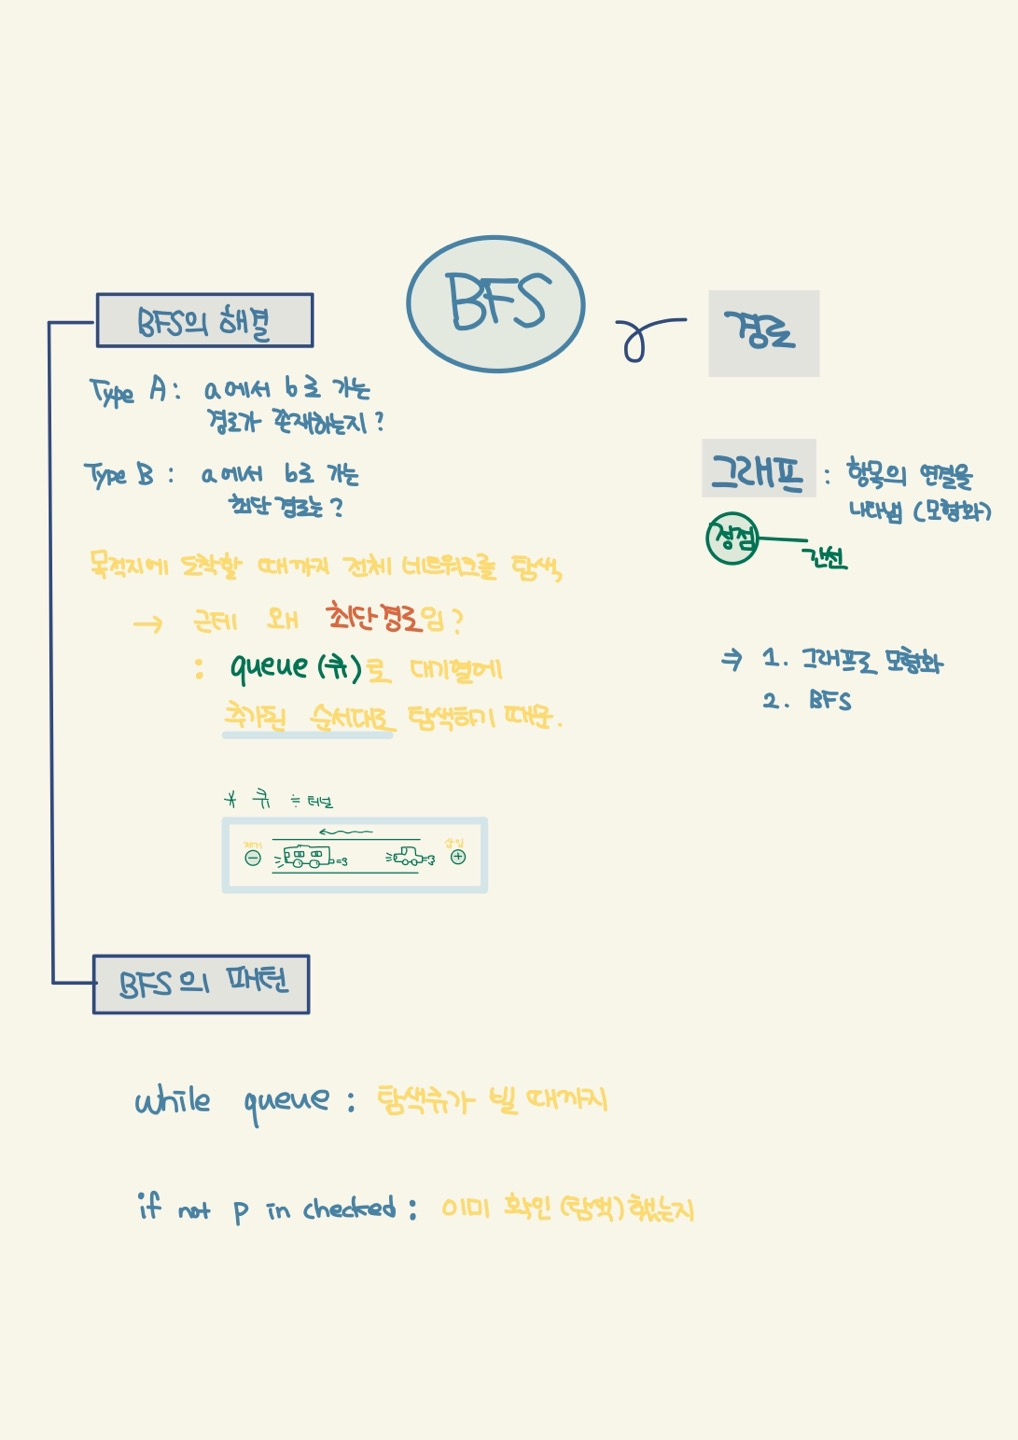 BFS
경로
BFS의 해결
Type A : a에서 b로 가는
경로가 존재하는지?
Type B : a에서 b로 가는
최단 경로는?
목적지에 도착할 때까지 전체 네트워크를 탐색,
→ 근데 왜 최단경로임?
: queue (큐)로 대기열에
추가된 순서대로 탐색하기 때문.
* 큐 ≒ 터널
제거 삽입
− +
그래프 : 항목의 연결을
나타냄 (모형화)
정점 간선
⇒ 1. 그래프로 모형화
2. BFS
BFS의 패턴
while queue : 탐색큐가 빌 때까지
if not p in checked : 이미 확인(탐색)했는지